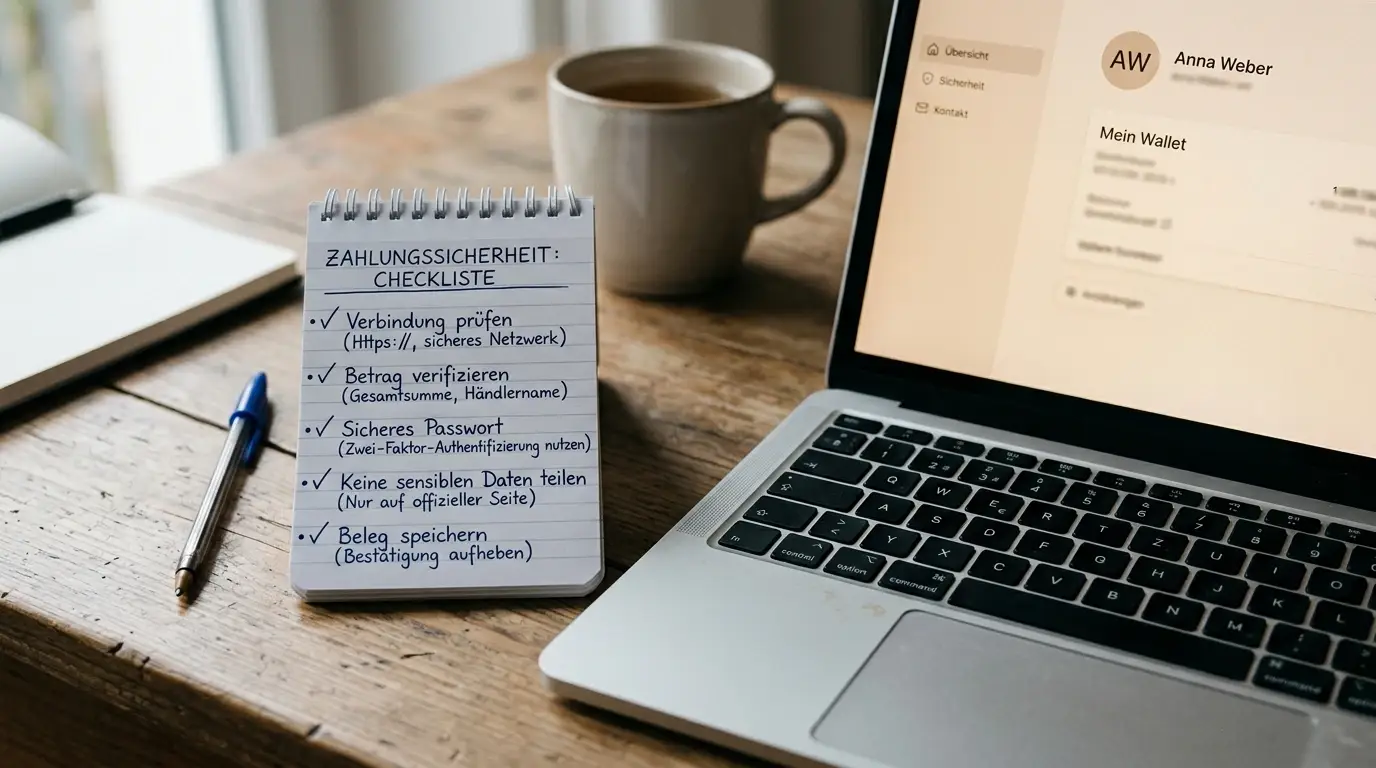 ZAHLUNGSSICHERHEIT:
CHECKLISTE
•✓ Verbindung prüfen
(Https://, sicheres Netzwerk)
•✓ Betrag verifizieren
(Gesamtsumme, Händlername)
•✓ Sicheres Passwort
(Zwei-Faktor-Authentifizierung nutzen)
•✓ Keine sensiblen Daten teilen
(Nur auf offizieller Seite)
•✓ Beleg speichern
(Bestätigung aufheben)
Übersicht
Sicherheit
Kontakt
AW
Anna Weber
Mein Wallet
Q W E€ R T Z U I O
A S D F G H J K L
Y X C V B N M
fn control option command
command